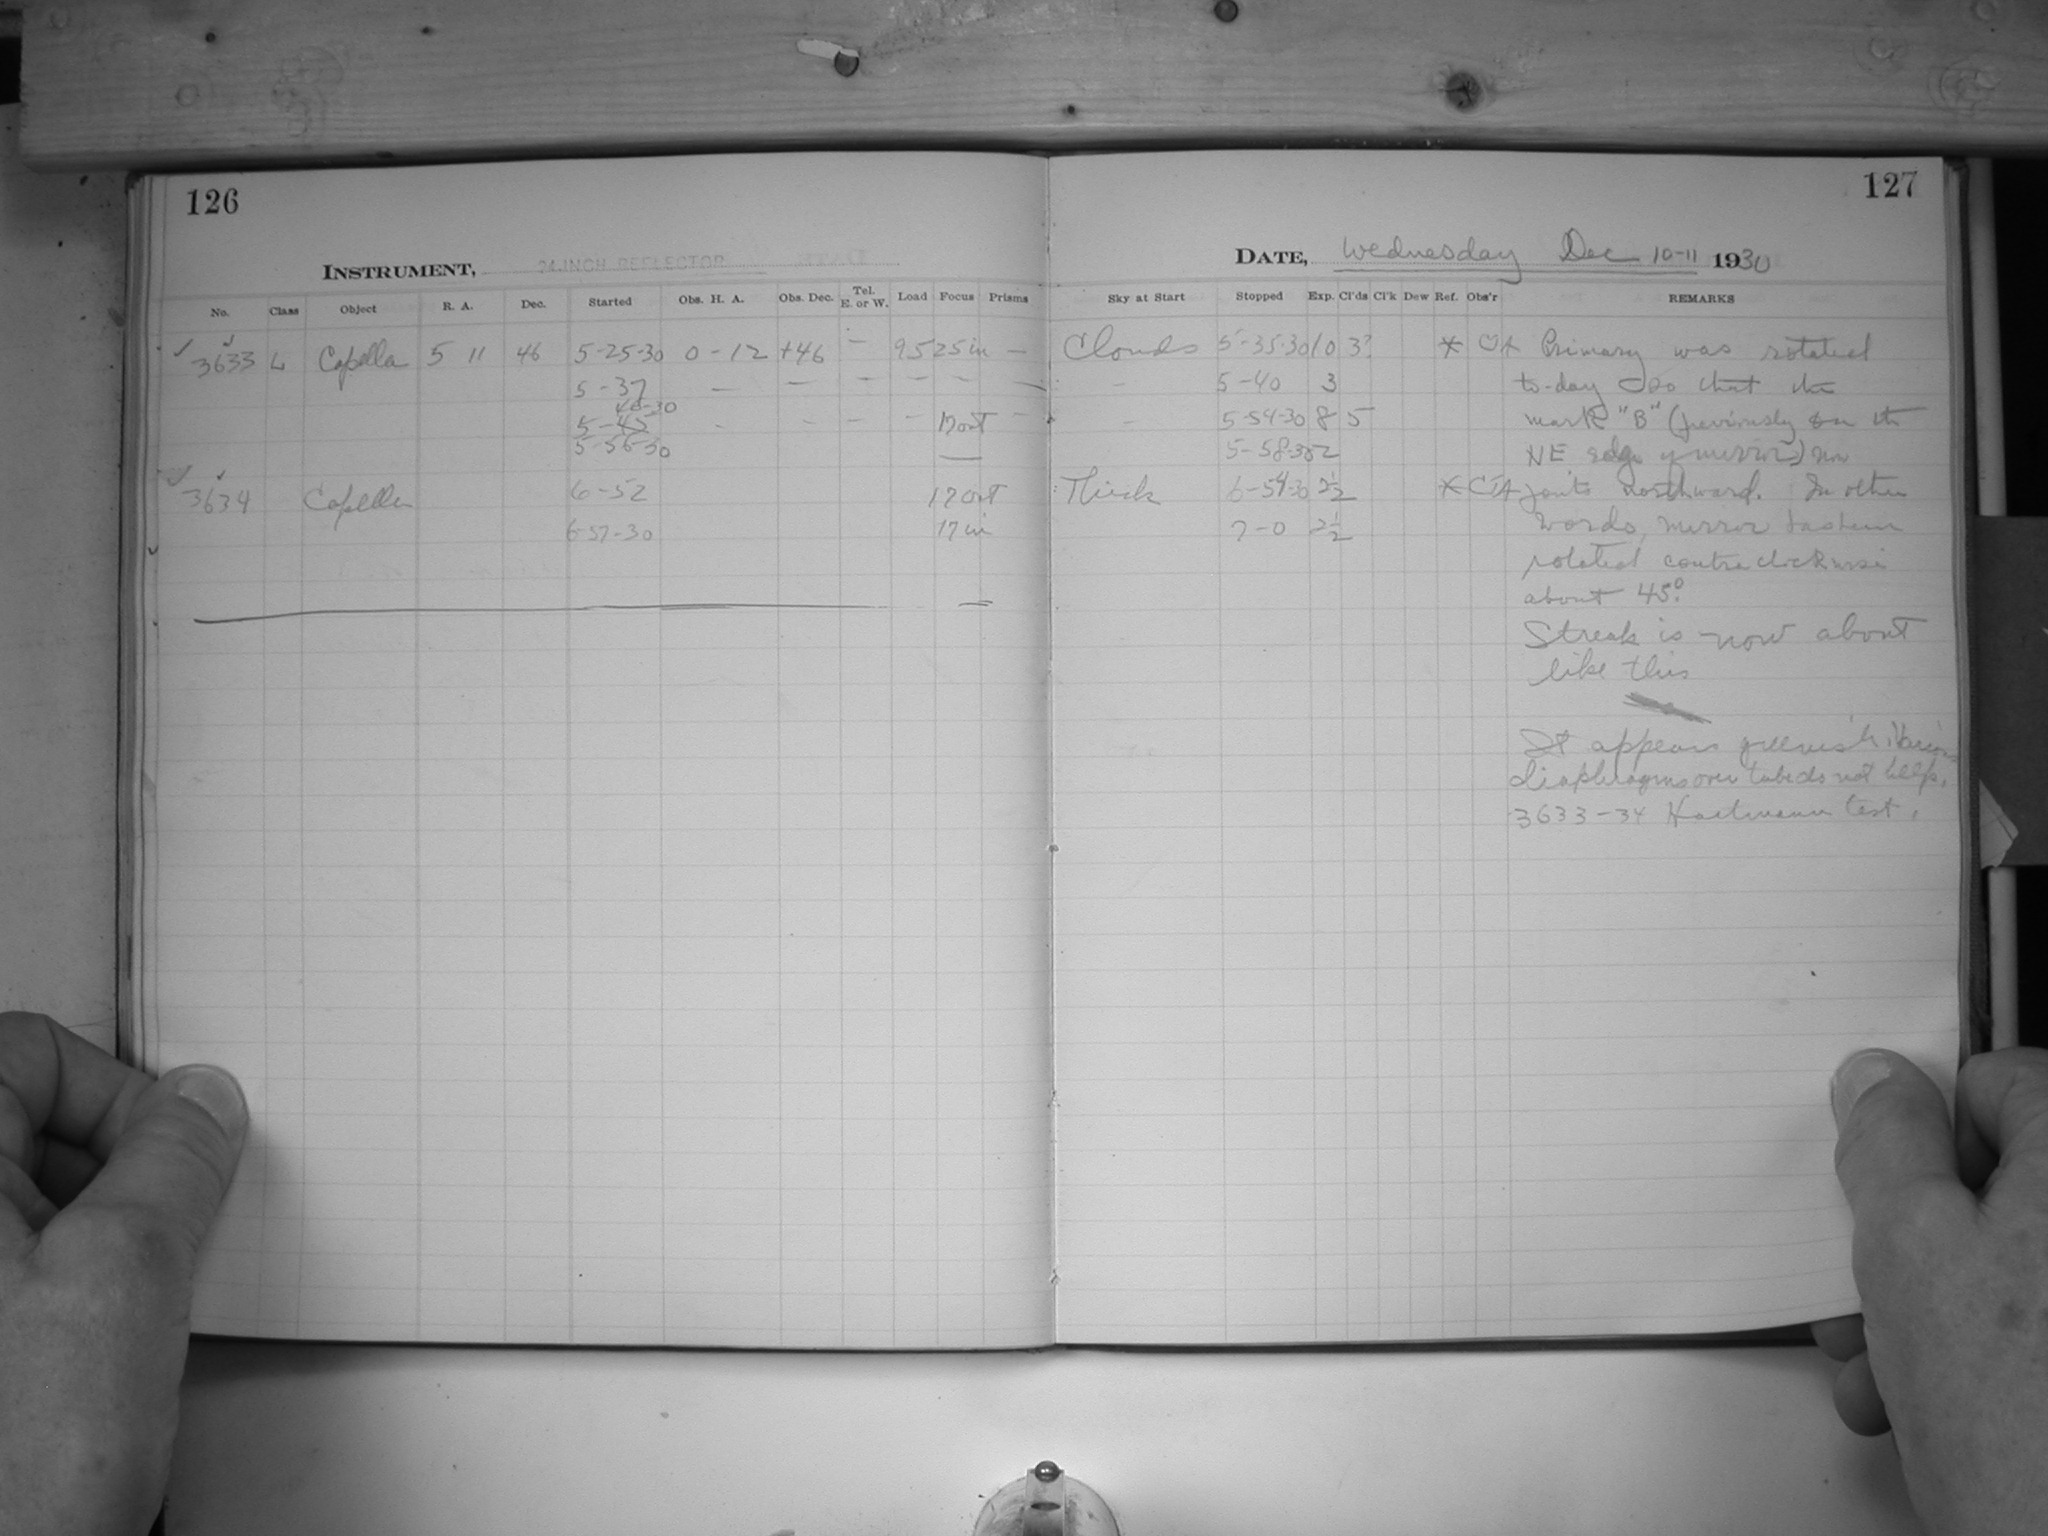 126
127
INSTRUMENT, 24-INCH REFLECTOR
DATE, Wednesday Dec 10-11 1930
No. Class Object R. A. Dec. Started Obs. H. A. Obs. Dec. Tel. E. or W. Load Focus Prisms Sky at Start Stopped Exp. Cl'ds Cl'k Dew Ref. Obs'r REMARKS
3633 L Capella 5 11 46 5-25-30 0-12 +46 — 95 25 in — Clouds 5-35-30 10 3? * Primary was rotated
5-37 — — — — — — — 5-40 3 to-day so that the
46-30
5-45 - - - - 17 out - - 5-54-30 8 5 mark "B" (previously on the
5-56-30 5-58-30 2 NE edge of mirror) now
3634 Capella 6-52 17 out Thick 6-54-30 2½ * points northward. In other
6-57-30 17 in 7-0 2½ words, mirror has been
rotated contraclockwise
about 45°.
Streak is now about
like this
It appears greenish. Various
diaphragms over tube do not help.
3633-34 Hartmann test.